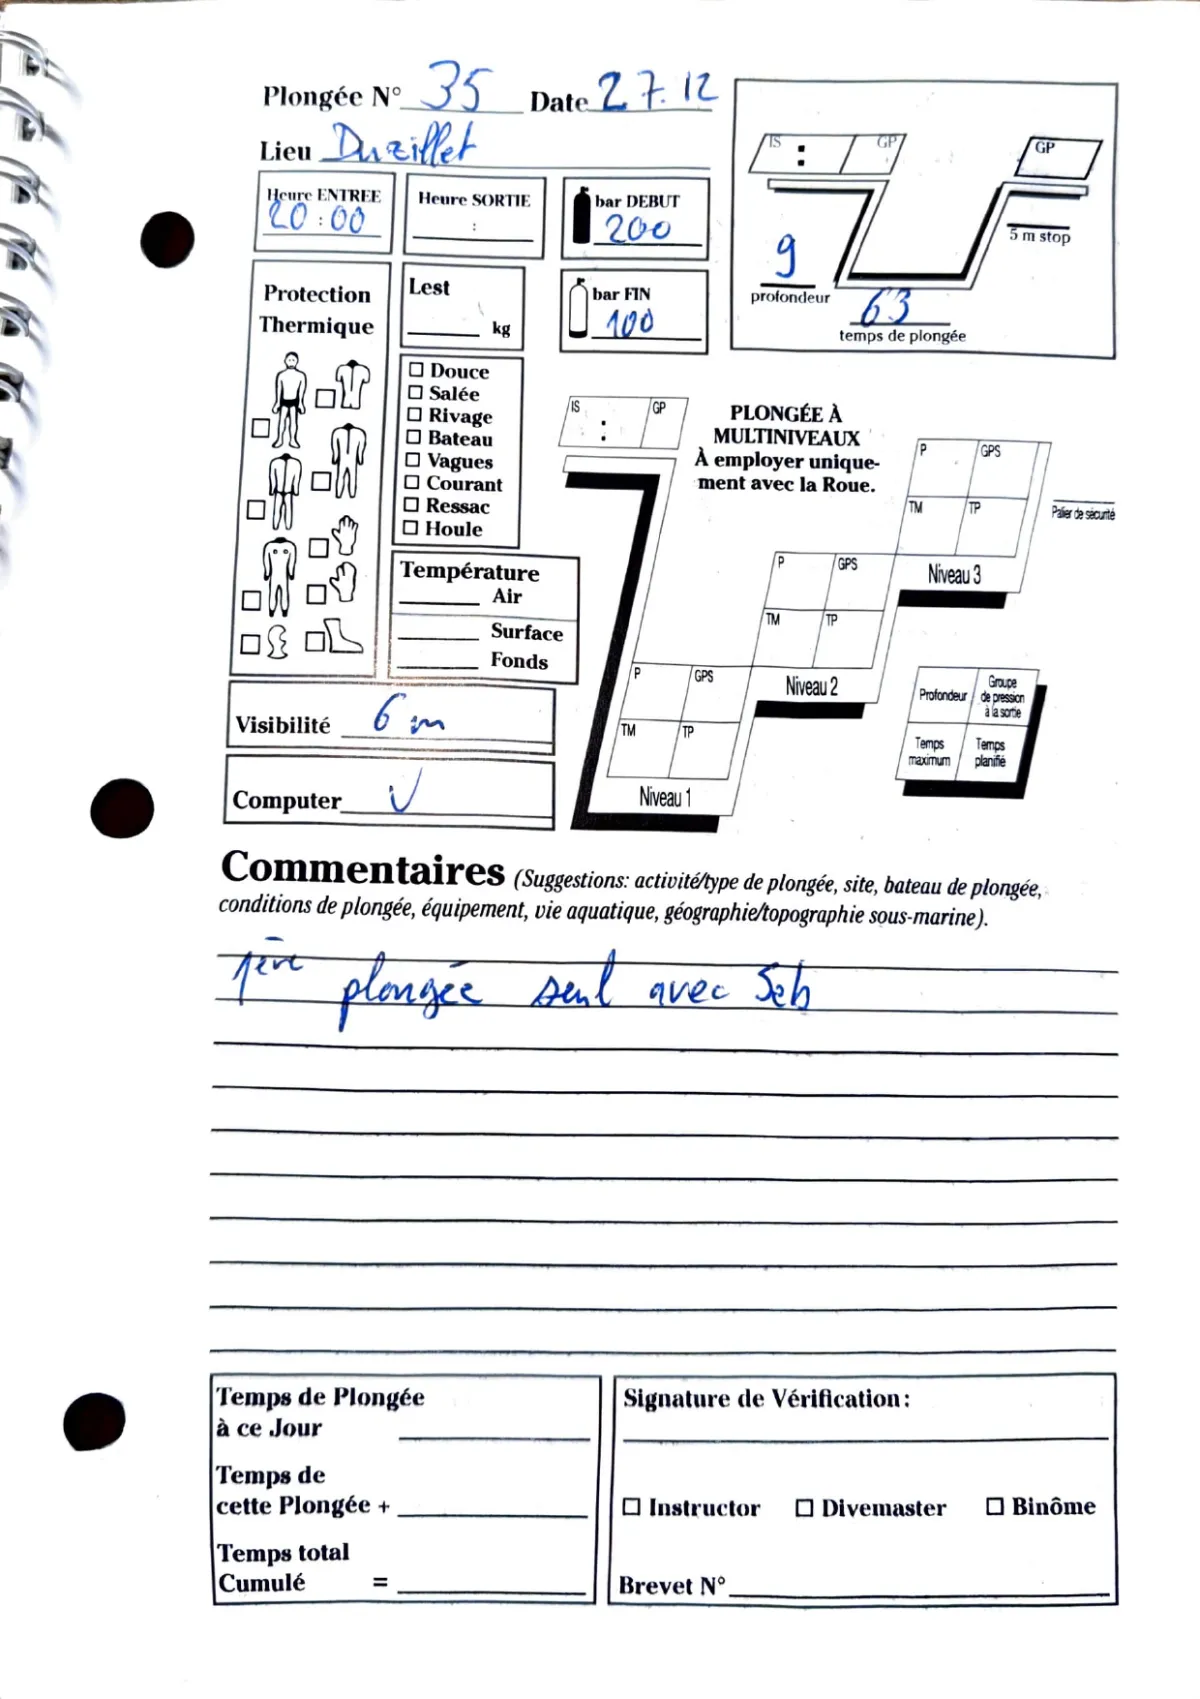 Plongée N° 35 Date 27.12
Lieu Duzillet
Heure ENTREE
20:00
Heure SORTIE
:
bar DEBUT
200
bar FIN
100
IS : GP
GP
9
profondeur
63
temps de plongée
5 m stop
Protection
Thermique
Lest
kg
Douce
Salée
Rivage
Bateau
Vagues
Courant
Ressac
Houle
Température
Air
Surface
Fonds
Visibilité 6 m
Computer ✓
IS : GP
PLONGÉE À
MULTINIVEAUX
À employer unique-
ment avec la Roue.
P GPS
TM TP
Niveau 1
P GPS
TM TP
Niveau 2
P GPS
TM TP
Niveau 3
Palier de sécurité
Profondeur
Groupe
de pression
à la sortie
Temps
maximum
Temps
planifié
Commentaires (Suggestions: activité/type de plongée, site, bateau de plongée,
conditions de plongée, équipement, vie aquatique, géographie/topographie sous-marine).
1ère plongée seul avec Seb
Temps de Plongée
à ce Jour
Temps de
cette Plongée +
Temps total
Cumulé =
Signature de Vérification:
Instructor Divemaster Binôme
Brevet N°